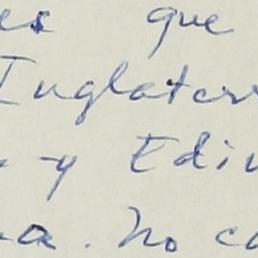 es que
Inglater
- y Edin
a. No co